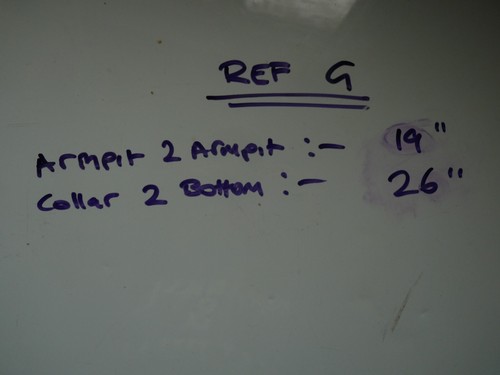 REF G
Armpit 2 Armpit :- 19"
Collar 2 Bottom :- 26"